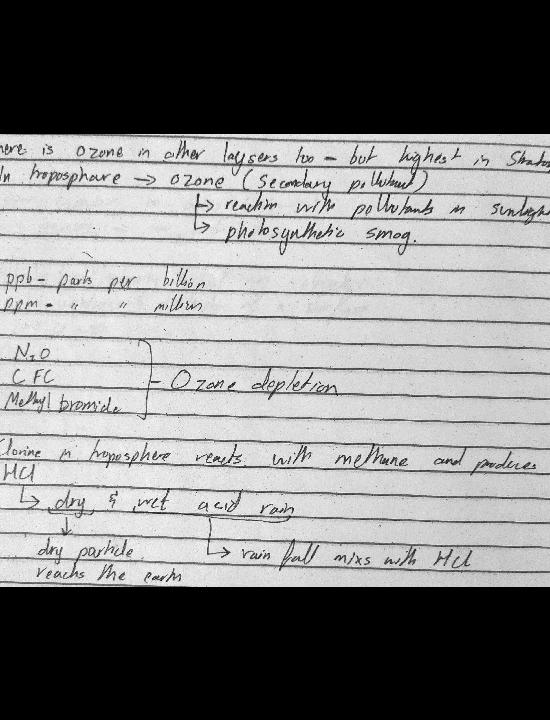 here is ozone in other laysers too - but highest in Stratos
In troposphare → ozone (Secondary pollutant)
↳ reachin with pollutants in sunlight
↳ photosynthetic smog.
ppb - parts per billion
ppm - " " million
N₂O
CFC
Methyl bromide
- Ozone depletion
Clorine in troposphere reacts with methane and produces
HCl
↳ dry & wet acid rain
↓
dry particle
reachs the earth
↳ rain fall mixs with HCl